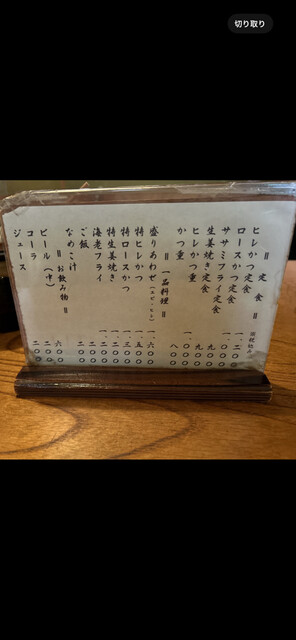 切り取り
〓 定 食 〓 税込み
ヒレかつ定食 一、二〇〇
ロースかつ定食 一、〇〇〇
ササミフライ定食 九〇〇
生姜焼き定食 九〇〇
ヒレかつ重 一、〇〇〇
かつ重 八〇〇
〓 一品料理 〓
盛りあわせ(エビ・ヒレ) 一、六〇〇
特ヒレかつ 一、五〇〇
特ロースかつ 一、三〇〇
特生姜焼き 一、二〇〇
海老フライ 一、二〇〇
ご飯 二〇〇
なめこ汁 二〇〇
〓 お飲み物 〓
ビール(中) 六〇〇
コーラ 二〇〇
ジュース 二〇〇